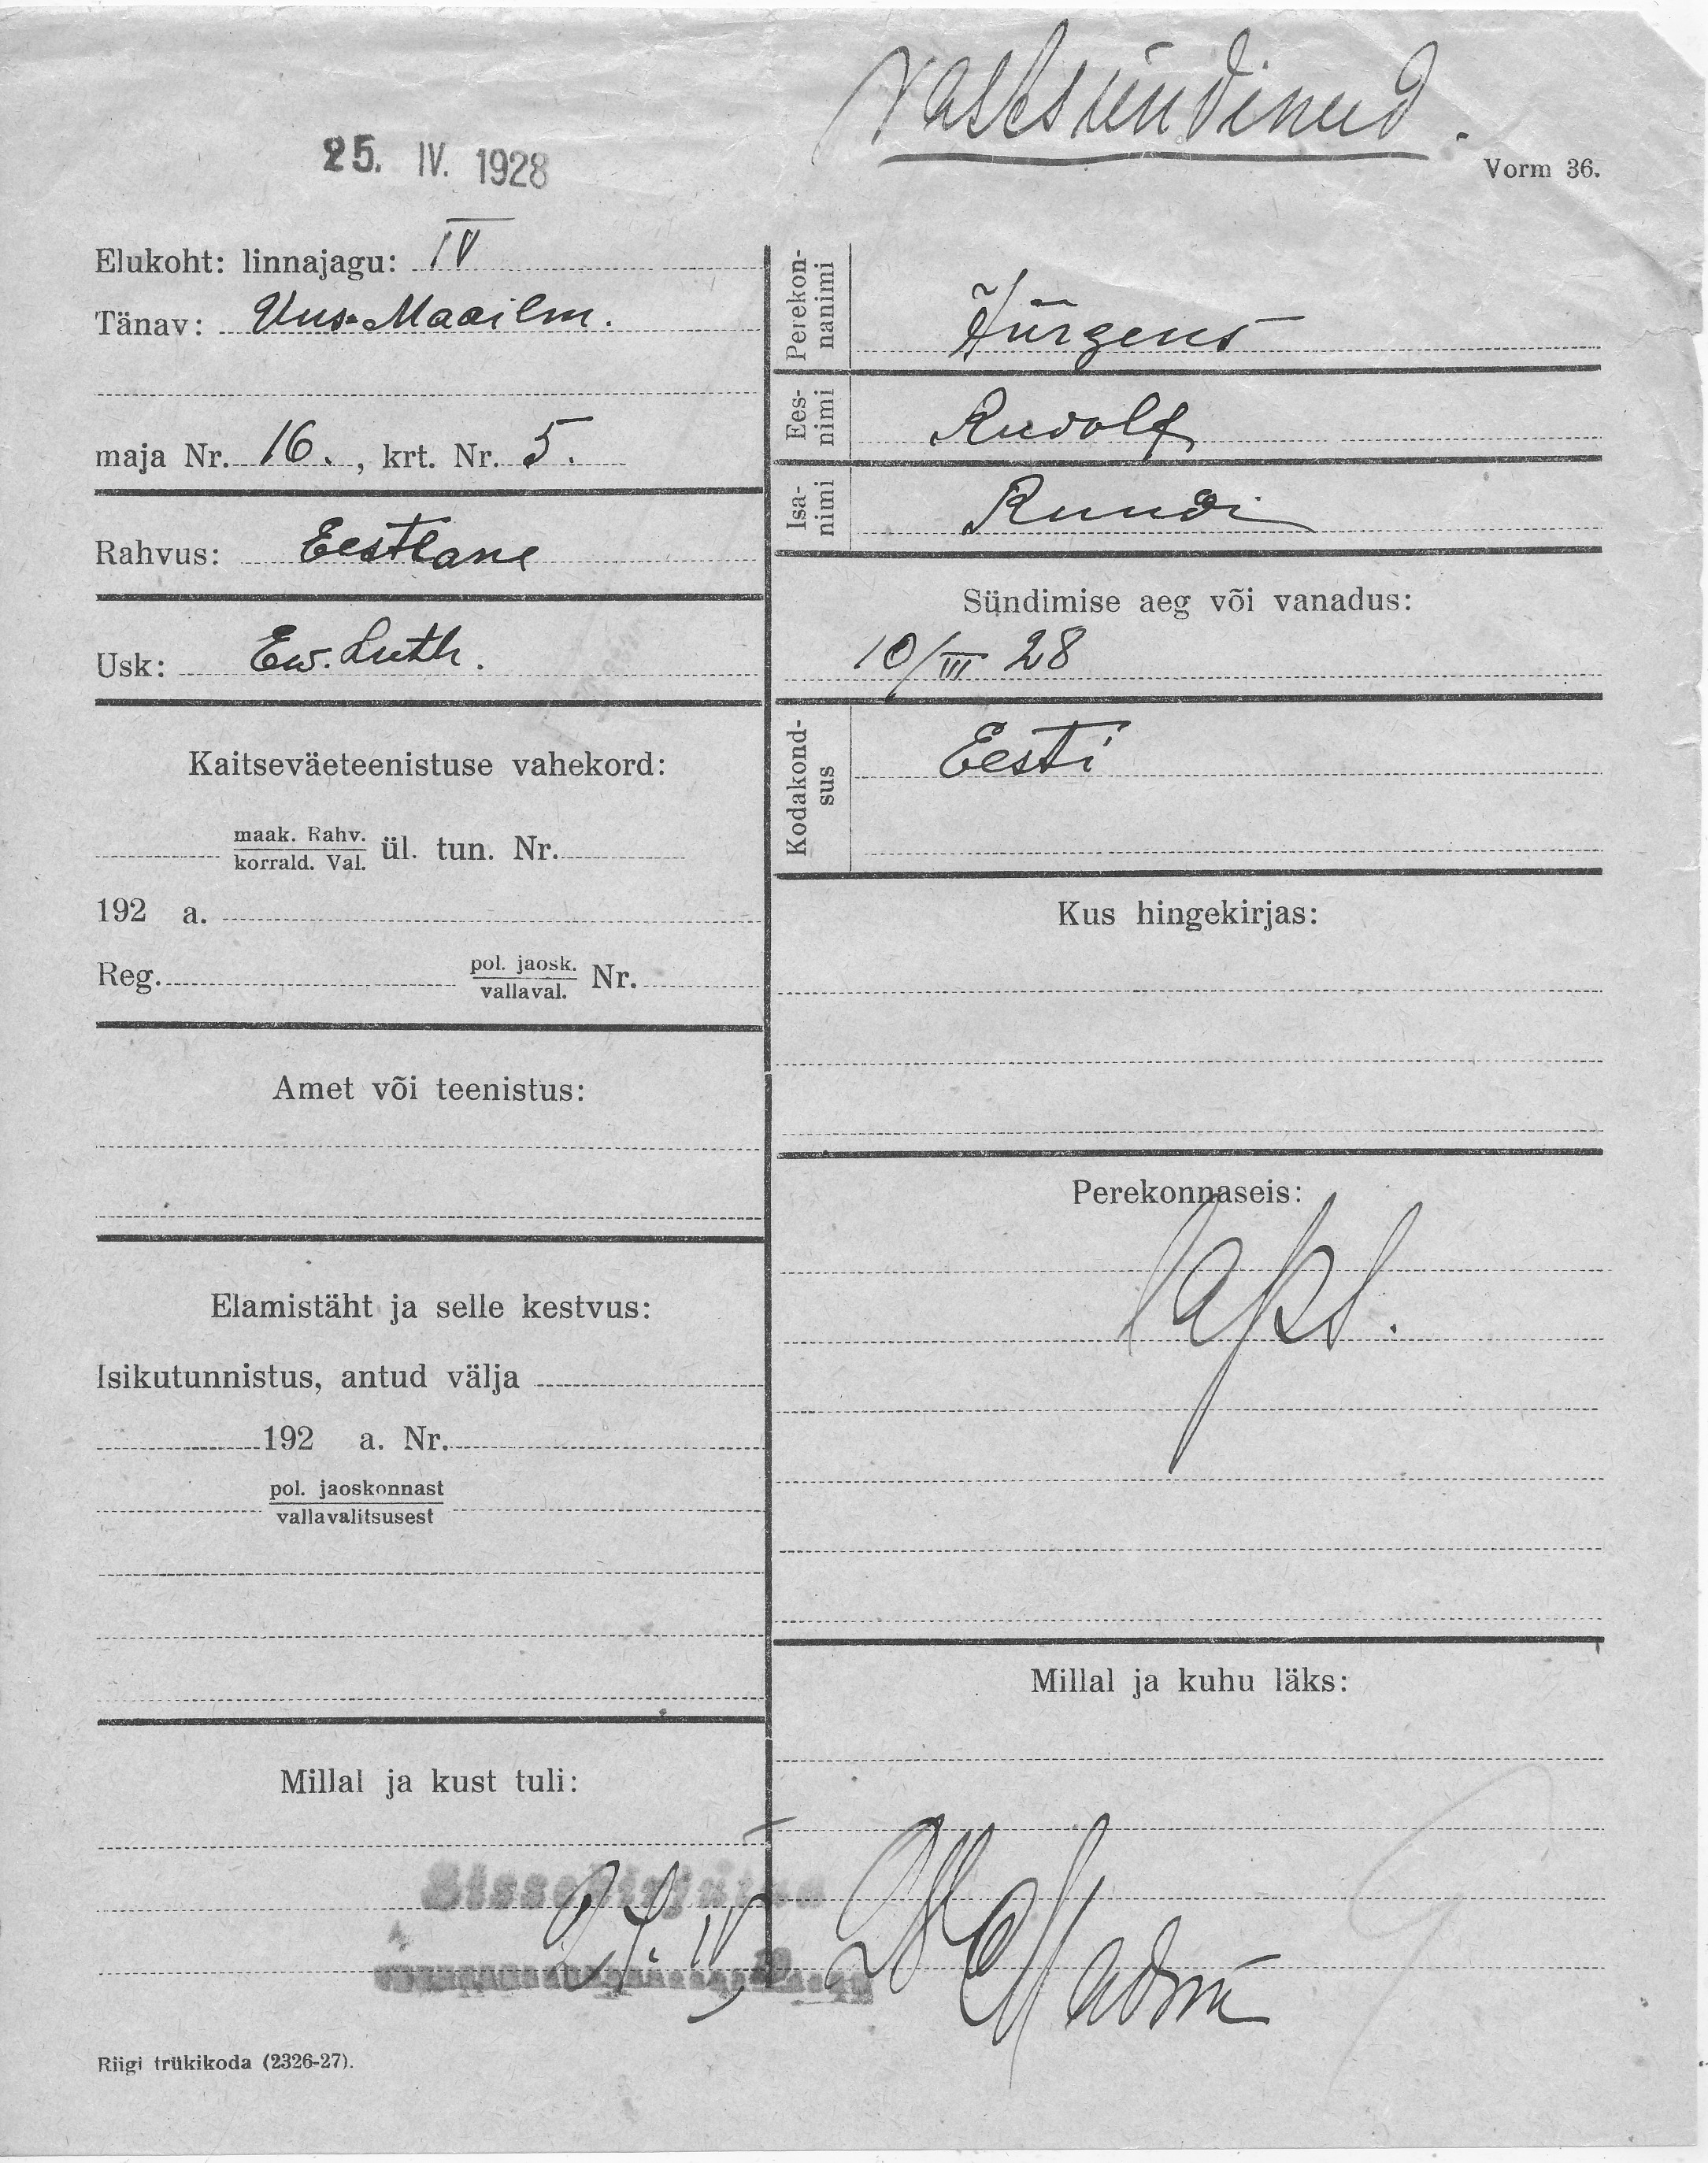 vastsündinud.
25. IV. 1928
Vorm 36.
Elukoht: linnajagu: IV
Tänav: Uus-Maailm.
maja Nr. 16. , krt. Nr. 5.
Rahvus: Eestlane
Usk: Ew. Luth.
Kaitseväeteenistuse vahekord:
maak. Rahv.
korrald. Val. ül. tun. Nr.
192 a.
Reg. pol. jaosk.
vallaval. Nr.
Amet või teenistus:
Elamistäht ja selle kestvus:
Isikutunnistus, antud välja
192 a. Nr.
pol. jaoskonnast
vallavalitsusest
Millal ja kust tuli:
Sissekirjutatud
Riigi trükikoda (2326-27).
Perekon-
nanimi Jürgens
Ees-
nimi Rudolf
Isa-
nimi
Sündimise aeg või vanadus:
10/III 28
Kodakond-
sus Eesti
Kus hingekirjas:
Perekonnaseis:
laps.
Millal ja kuhu läks: